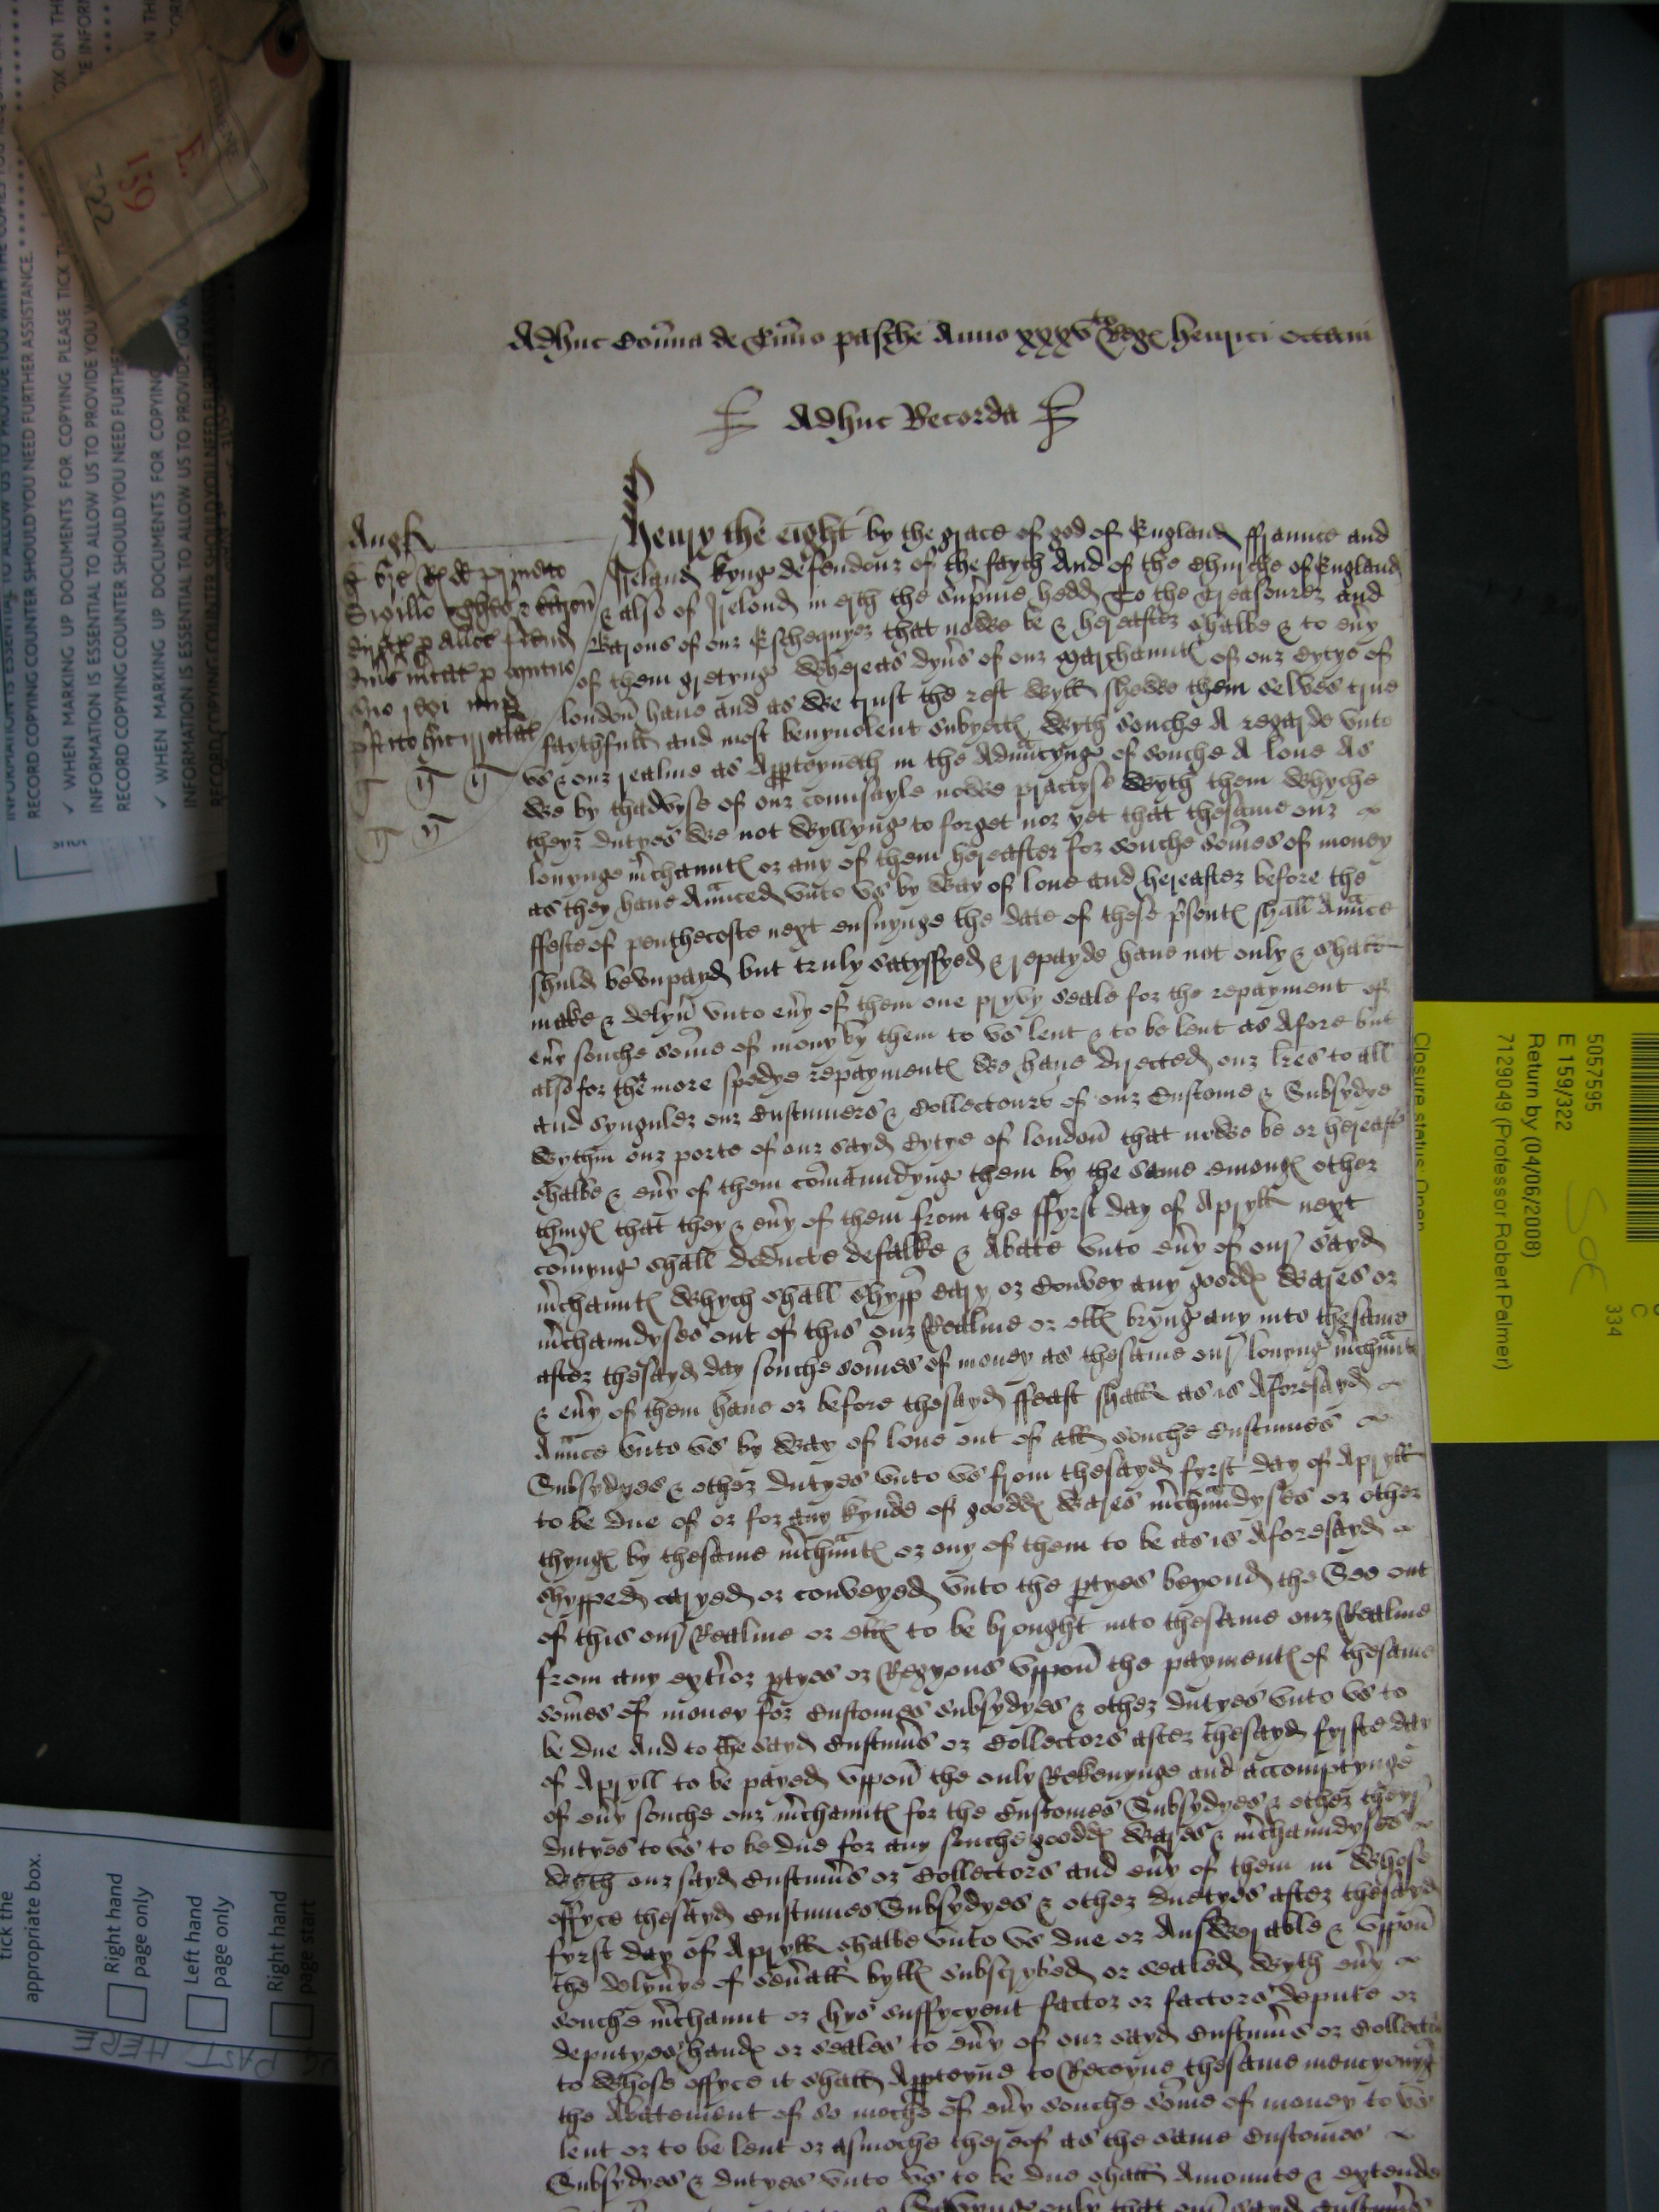 Adhuc Co͞ia de T͞mio pasche Anno xxxvto Reg Henrici octavi
Adhuc Recorda
Angl
Henry the eight by the grace of god of England ffraunce and
Ireland kyng defendour of the fayth And of the Churche of England
& also of Irelond in erth the sup̄me hedd To the Treasourer and
Barons of our Eschequyer that nowe be & hereafter shalbe & to ev̄y
of them gretyng Whereas dyv̄s of our Marchaunt of our Cytye of
london have and as we trust the rest wyll shewe them selves true
faythfull and most benyvolent subyect wyth souche A regarde unto
us & our realme as Apperteyneth in the Advancyng of souche A lone As
we by thadvyse of our counsayle nowe practyse wyth them whyche
theyr dutyes we not wyllyng to forget nor yet that thesame our
lonynge m̄chaunt or any of them hereafter for souche som̄es of money
as they have Avaunced unto us by way of lone and hereafter before the
ffeste of penthecoste next ensuynge the date of these p̄sent shall Avaunce
shuld be unpayd but truly satysfyed & repayde have not only & shall
make & delyv̄ unto ev̄y of them one pryvy seale for the repayment of
ev̄y souche som̄e of mony by them to us lent & to be lent as Afore but
also for the more spedye repayment we have dyrected our lres to all
and synguler our Custumers & Collectours of our Custome & Subsydye
wythin our porte of our sayd Cytye of london that nowe be or hereaft
shalbe & ev̄y of them com̄aundyng them by the same emong other
thing that they & ev̄y of them from the ffyrst day of Apryll next
com̄yng shall deducte defalke & Abate unto ev̄y of our sayd
m̄chaunt whych shall shypp cary or Convey any goodd wares or
m̄chaundyses out of this our Realme or ell bryng any into thesame
after thesayd day souche som̄es of money as thesame our lonyng m̄chaunt
& ev̄y of them have or before thesayd ffeast shall as is Aforesayd
Avaunce unto us by way of lone out of all souche Custumes
Subsydyes & other dutyes unto us from thesayd fyrst day of Apryll
to be due of or for any kynde of goodd wares m̄chaundyses or other
thyng by thesame m̄chaunt or any of them to be as is Aforesayd
shypped caryed or conveyed unto the p̱tyes beyond the See out
of this our Realme or ell to be brought into thesame our Realme
from any ext̄ior p̱tyes or Regyons uppon the payment of thesame
som̄es of money for Customes subsydyes & other dutyes unto us to
be due And to the sayd Custum̄s or Collectors after thesayd fyrste day
of Apryll to be payed uppon the only Rekenynge and accomptynge
of ev̄y souche our m̄chaunt for the Customes Subsydyes & other theyr
dutyes to us to be due for any souche goodd wares & m̄chaundyses
wyth our sayd Custum̄s or Collectors and ev̄y of them in whose
offyce thesayd Custumes Subsydyes & other duetyes after thesayd
fyrst day of Apryll shalbe unto us due or Answerable & uppon
the delyv̄ye of sev̄all byll subscrybed or sealed wyth ev̄y
souche m̄chaunt or hys suffycyent factor or factors depute or
deputyes hand or seales to ev̄y of our sayd Custum̄s or Collecto
to whose offyce it shall Apperteyne to Receyve thesame mencyonyng
the Abatement of so moche of ev̄y souche som̄e of money to us
lent or to be lent or asmoche thereof as the same Customes
Subsydyes & dutyes unto us to be due shall Amounte & extende
E.
159
322
5057595
E 159/322
Return by (04/06/2008)
7129049 (Professor Robert Palmer)
Closure status: Open
334
C
✓ WHEN MARKING UP DOCUMENTS FOR COPYING PLEASE TICK
INFORMATION IS ESSENTIAL TO ALLOW US TO PROVIDE YOU
RECORD COPYING COUNTER SHOULD YOU NEED FURTHER ASSISTANCE.
tick the
appropriate box.
Right hand
page only
Left hand
page only
Right hand
page start
PAST HERE